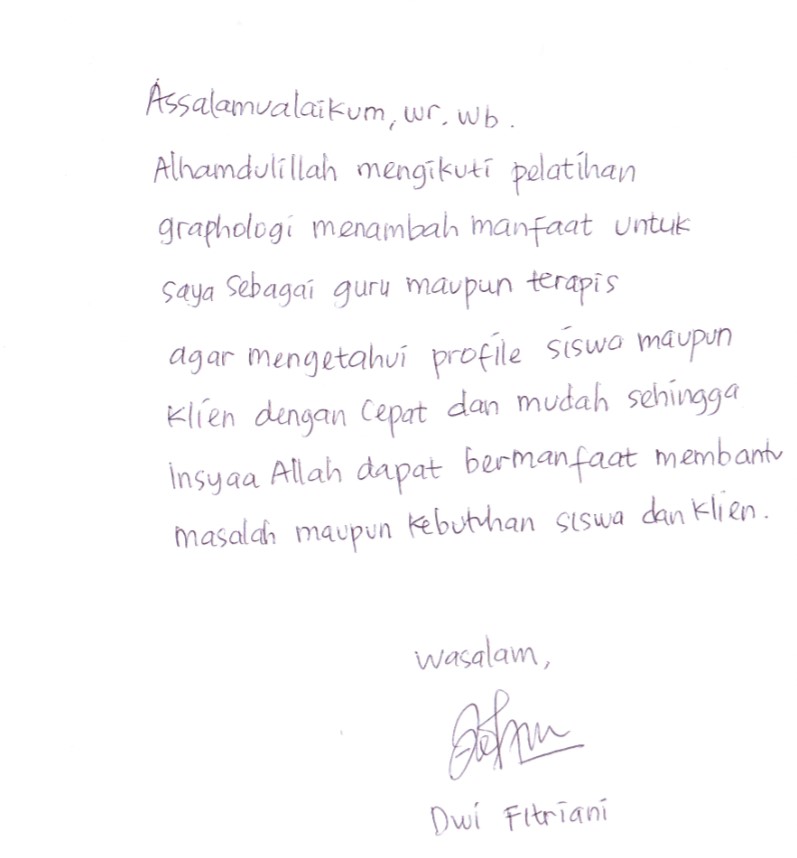 Assalamualaikum, wr. wb.
Alhamdulillah mengikuti pelatihan
graphologi menambah manfaat untuk
saya sebagai guru maupun terapis
agar mengetahui profile siswa maupun
klien dengan cepat dan mudah sehingga
insyaa Allah dapat bermanfaat membantu
masalah maupun kebutuhan siswa dan klien.
wasalam,
Dwi Fitriani